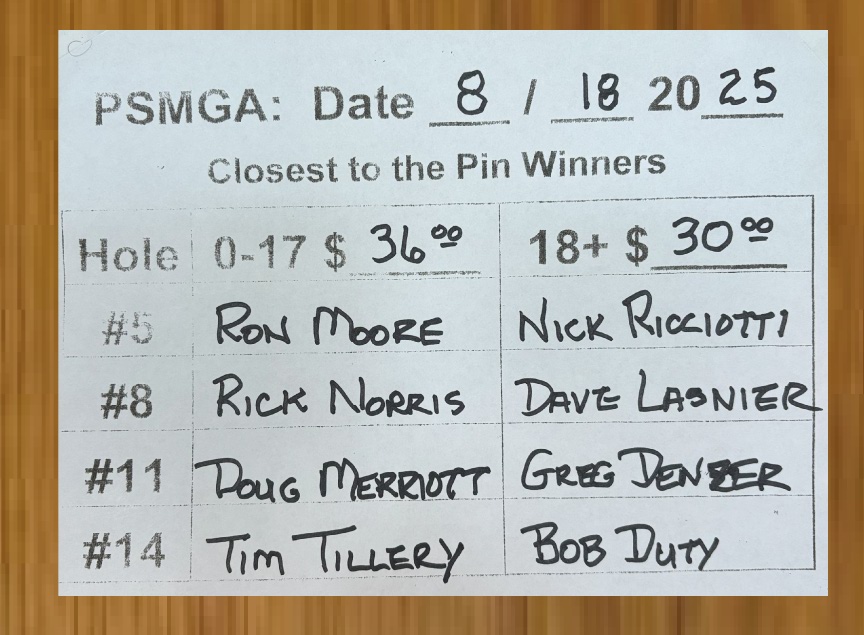 PSMGA: Date 8 / 18 2025
Closest to the Pin Winners
Hole 0-17 $ 36.00 18+ $ 30.00
#5 RON MOORE NICK RICCIOTTI
#8 RICK NORRIS DAVE LASNIER
#11 DOUG MERRIOTT GREG DENZER
#14 TIM TILLERY BOB DUTY